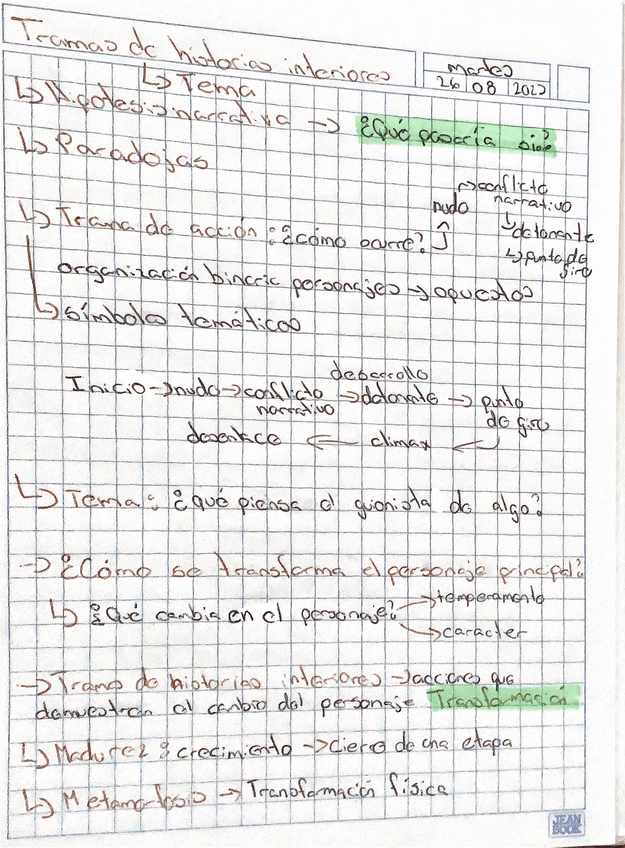 Tramas de historias interiores
martes
26 08 2025
↳ Tema
↳ Hipotesis narrativa → ¿Qué pasaría si...?
↳ Paradojas
↳ Trama de acción: ¿cómo ocurre?
nudo
→ conflicto narrativo
↳ detonante
↳ punto de giro
organización binaria personajes → opuestos
↳ símbolos temáticos
desarrollo
Inicio → nudo → conflicto → detonante → punto
narrativo
de giro
desenlace ← climax ←
↳ Tema: ¿qué piensa el guionista de algo?
→ ¿Cómo se transforma el personaje principal?
↳ ¿Qué cambia en el personaje?
→ temperamento
→ caracter
→ Tramas de historias interiores → acciones que
demuestran el cambio del personaje Transformación
↳ Madurez: crecimiento → cierre de una etapa
↳ Metamorfosis → Transformación física
JEAN BOOK